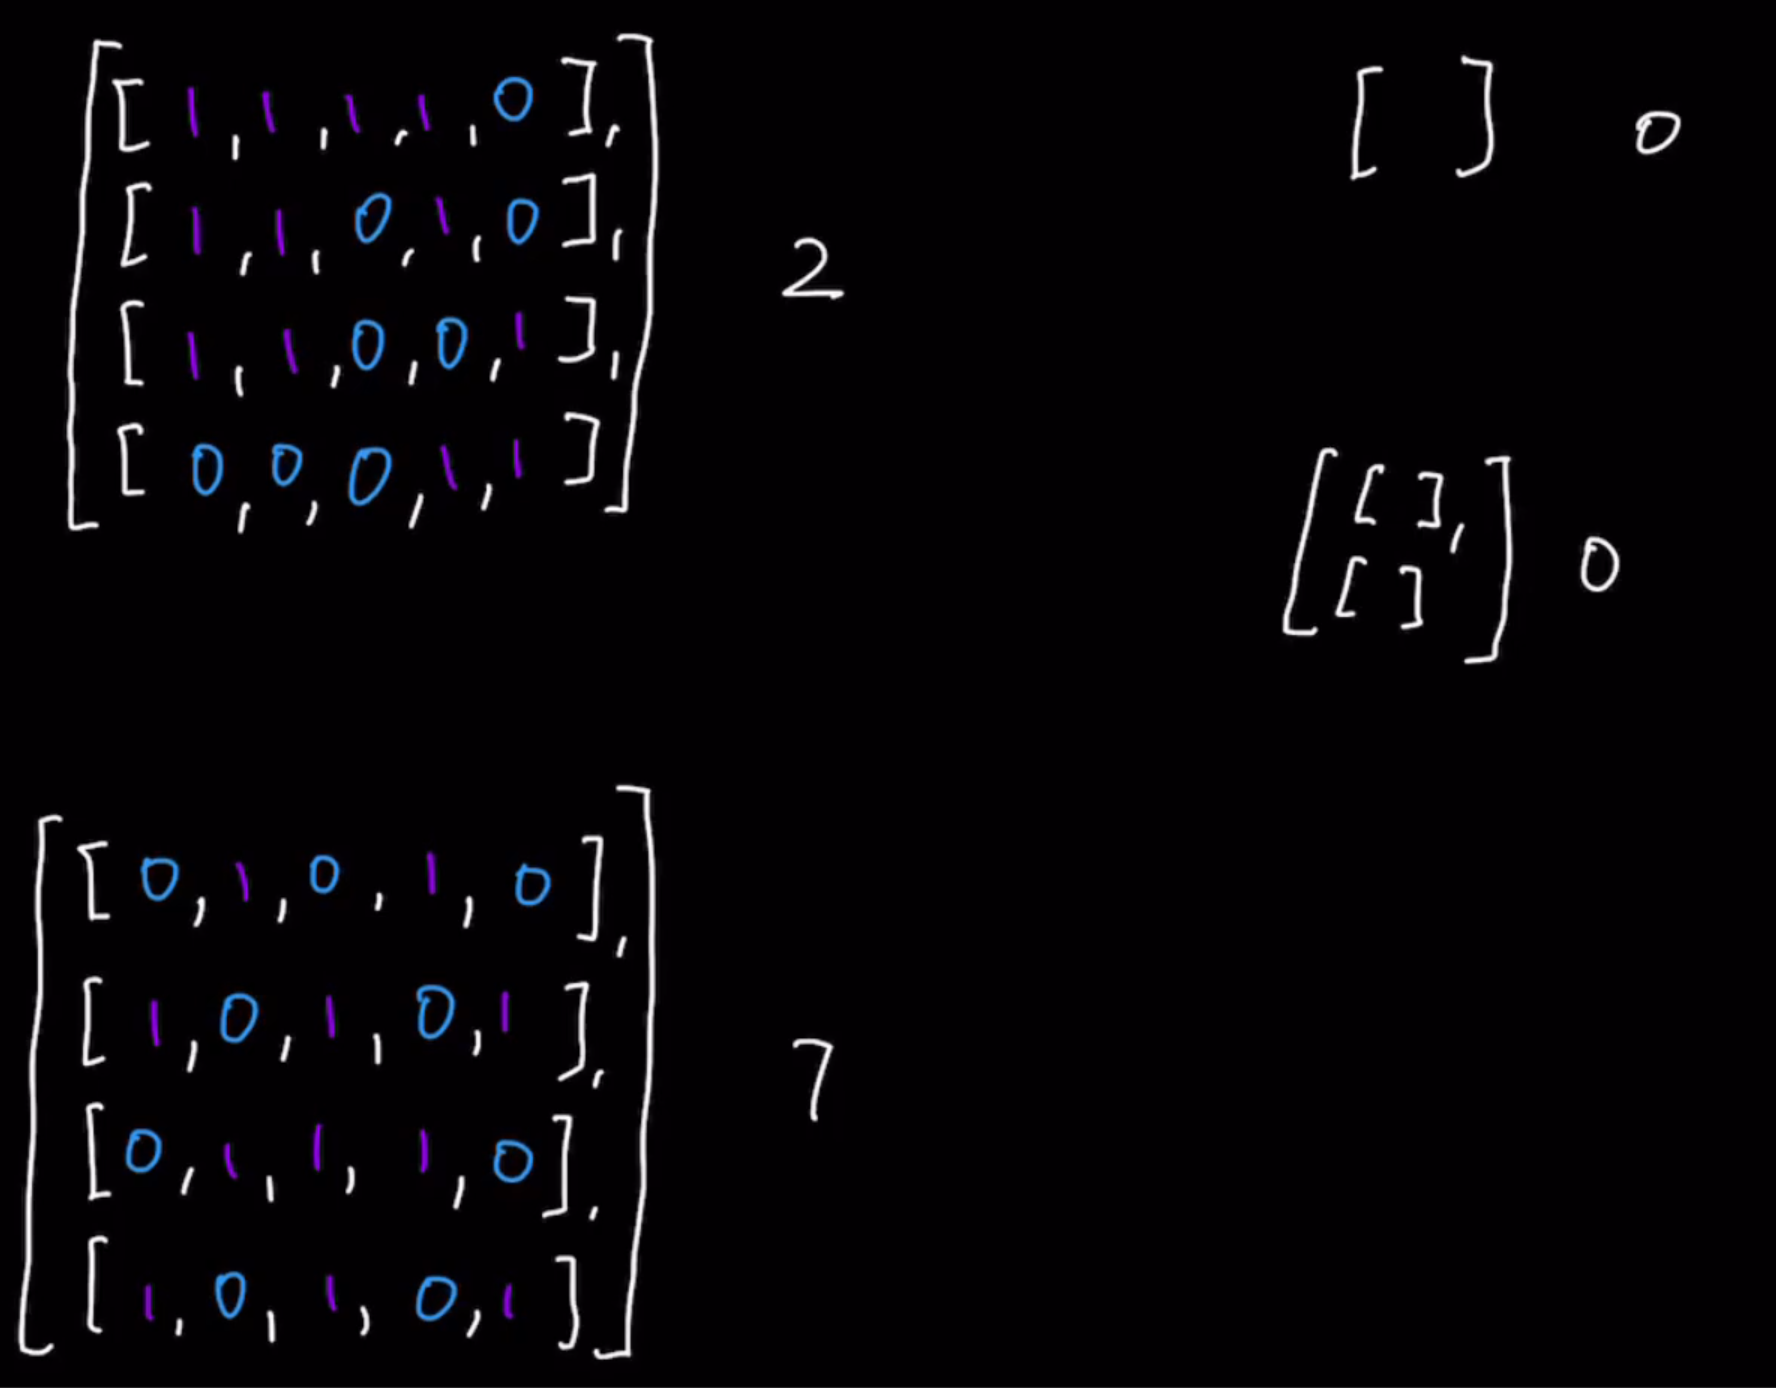 [[1,1,1,1,0],
[1,1,0,1,0],
[1,1,0,0,1],
[0,0,0,1,1]]
2
[ ] 0
[[ ],
[ ]] 0
[[0,1,0,1,0],
[1,0,1,0,1],
[0,1,1,1,0],
[1,0,1,0,1]]
7